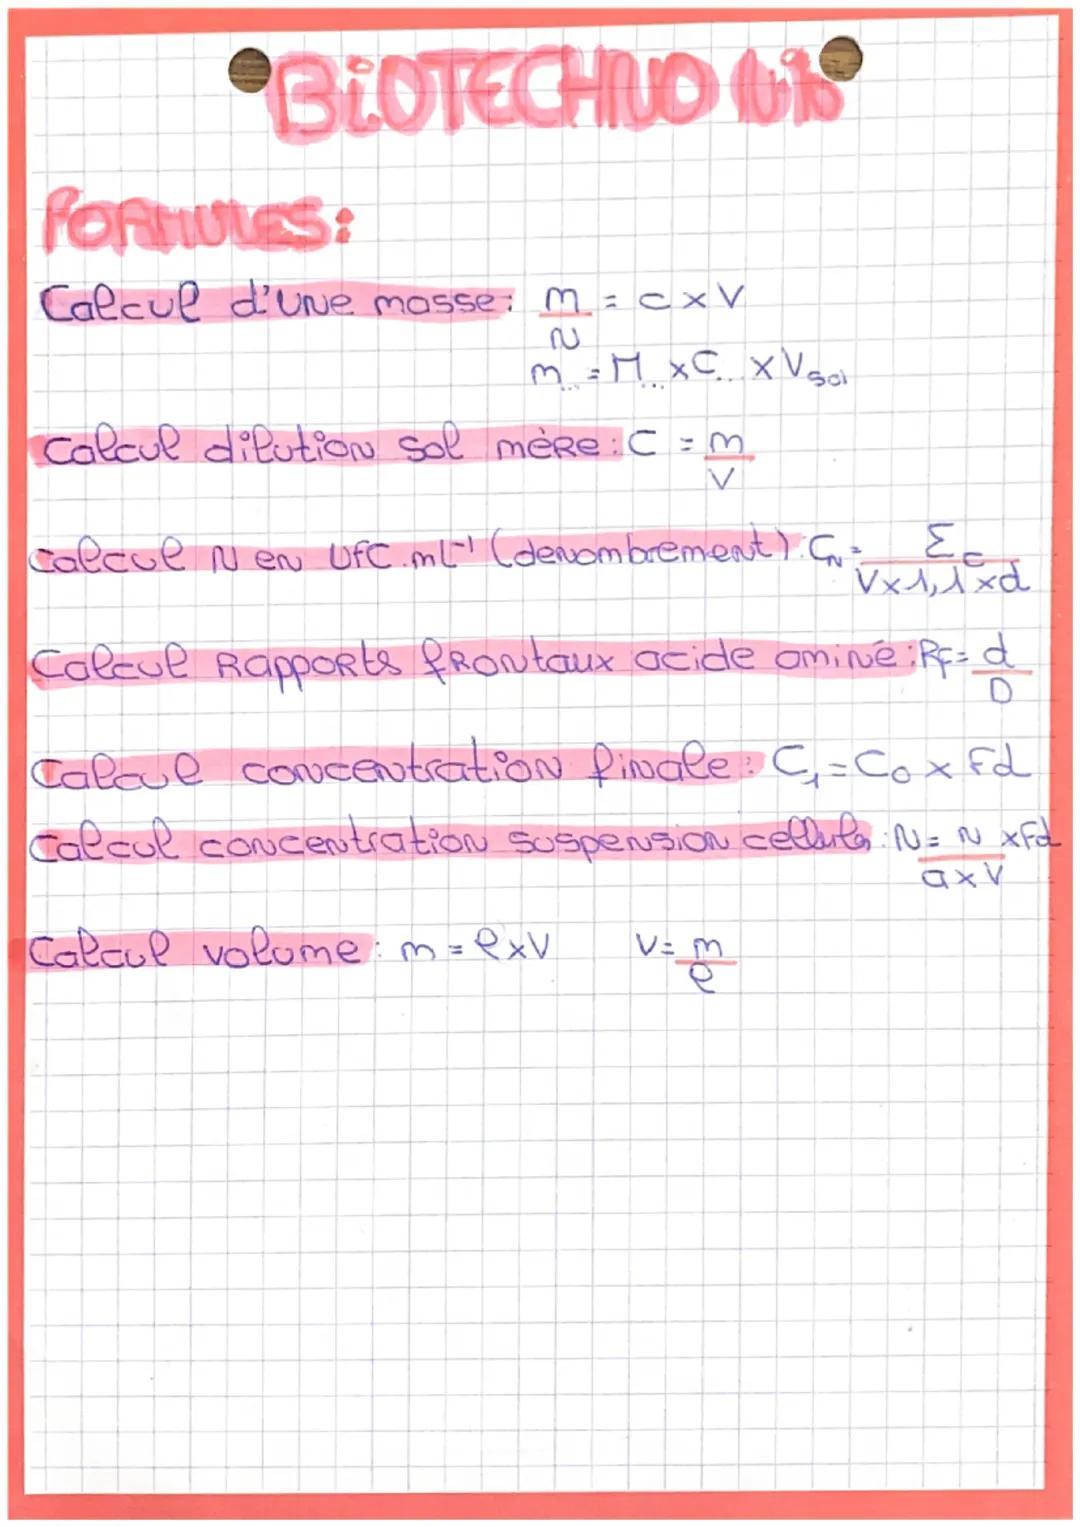 BIOTECHNO
FORMULES:
Calcul d'une masse: m/n = c x V
m... = M... x C... x Vsol
Calcul dilution sol mère: C = m/V
Calcul N en UFC.mL⁻¹ (denombrement): CN = Σc/(V x 1,1 x d)
Calcul Rapports frontaux acide aminé: RF = d/D
Calcul concentration finale: C₁ = C₀ x Fd
Calcul concentration suspension cellules: N = n/(a x V) x Fd
Calcul volume: m = ρ x V V = m/ρ